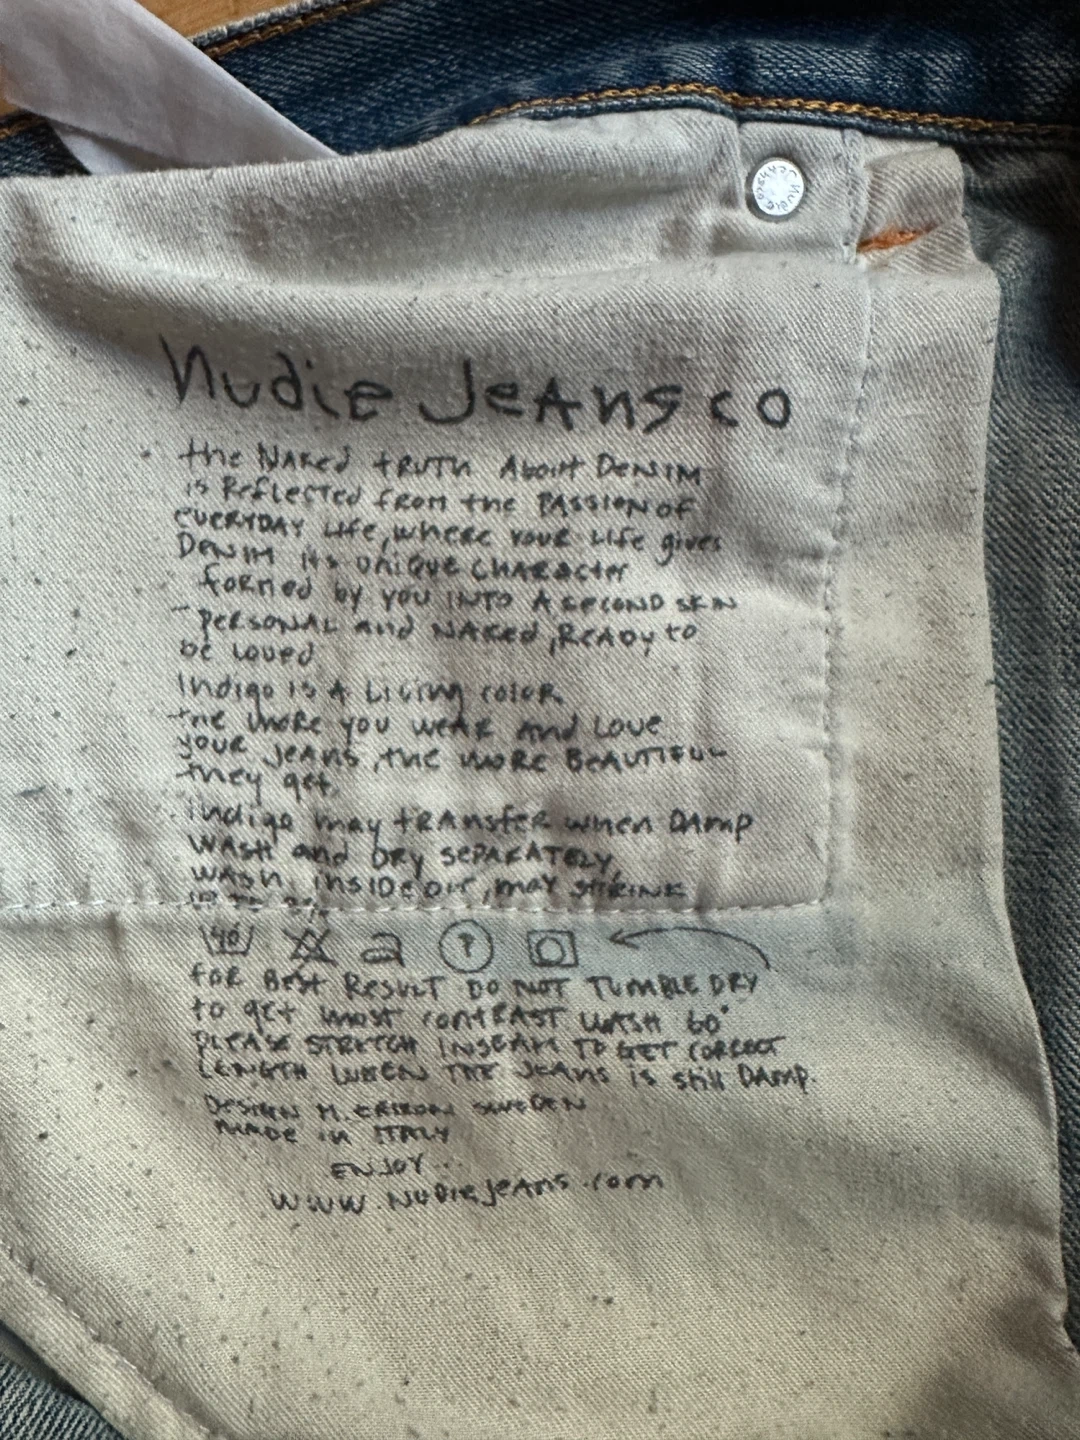 Nudie Jeans co
the NAKed tRUTH About DENIM
is Reflected from the PASSION of
EVERYDAY Life, where your Life gives
DENIM its unique CHARACter
formed by you INTO A second skin
- personAL and NAKed, READy to
be Loved
Indigo is A Living color
the more you weAR And Love
your jeans, the more BeAUTIFUL
they get.
Indigo may tRAnsfer when DAmp
WAsh and DRy sepARATELy
WAsh insIDe out, mAy shRINK
40
P
FOR Best ResuLT DO NOT TUmBLE DRY
to get most contRAST WASH 60°
PLEASE STRETCH INSEAM TO GET CORRECT
LENGTH WHEN THE JeAns is still DAMP.
DesigN M. ERIXON SWEDEN
mADe in ITALY
ENJOY...
WWW.NuDieJeAns.com